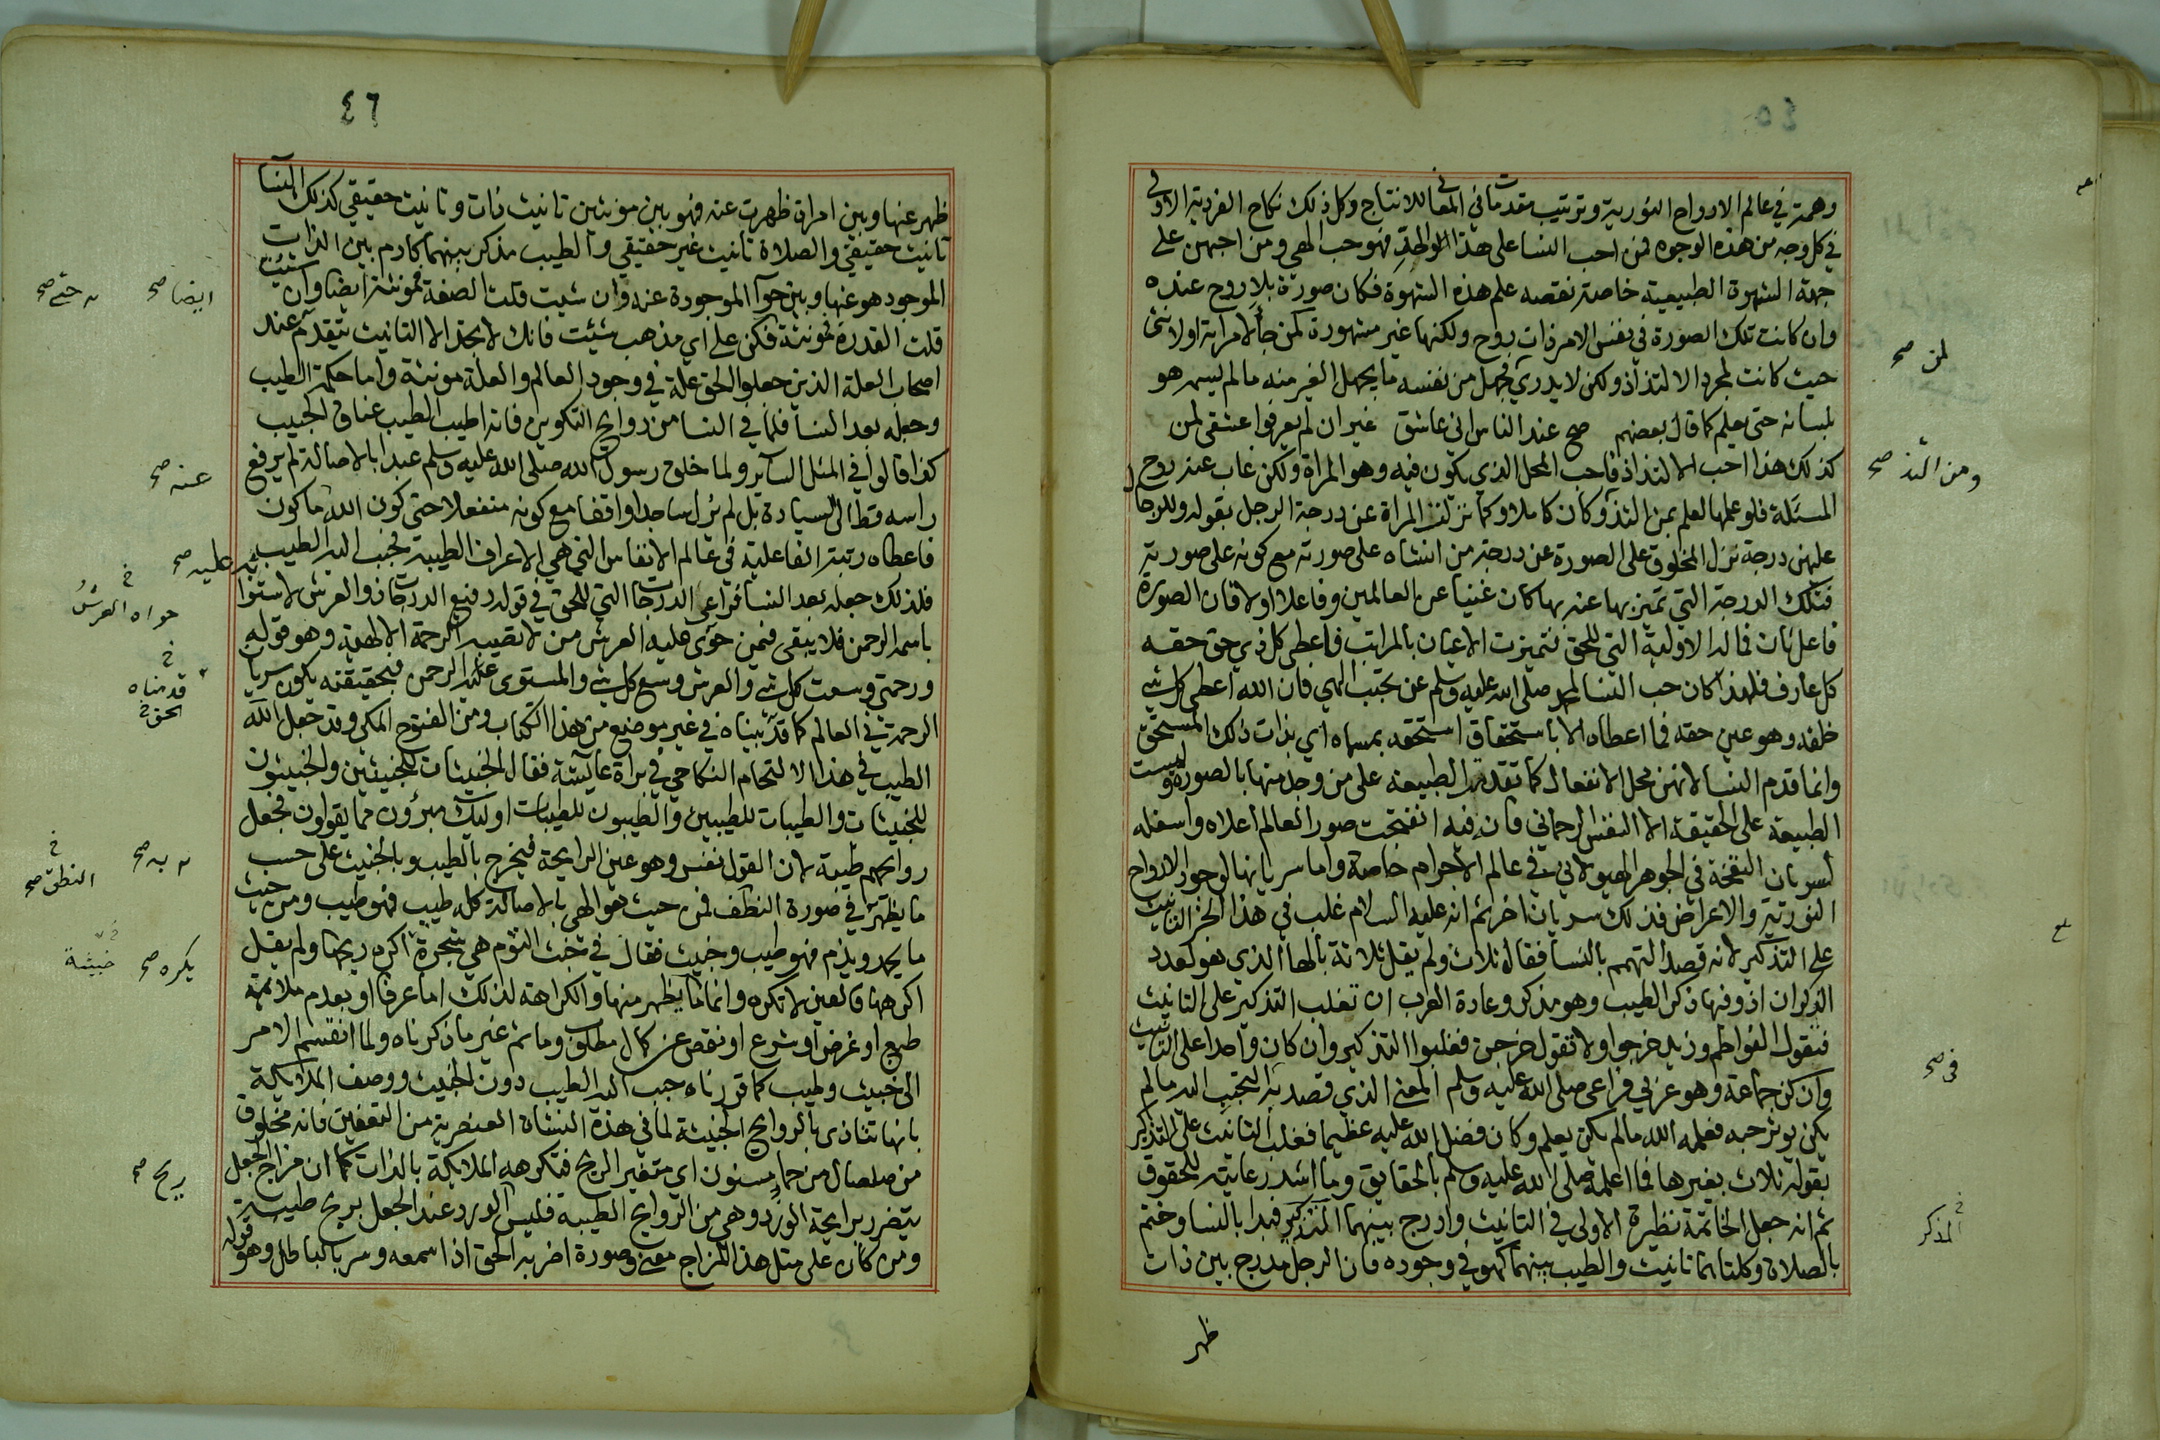 ٤٥
وهمة في عالم الارواح النورية وترتيب مقدمات في المعاني للانتاج وكل ذلك نكاح الفردية الاولى
في كل وجه من هذه الوجوه فمن احب النسا على هذا الحد فهو حب الهي ومن احبهن على
جهة الشهوة الطبيعية خاصة نقصه علم هذه الشهوة فكان صورة بلا روح عنده
وان كانت تلك الصورة في نفس الامر ذات روح ولكنها غير مشهودة لمن جا لامراته او لانثى
حيث كانت لمجرد الالتذاذ ولكن لا يدري لمن فجهل من نفسه ما يجهل الغير منه ما لم يسمه هو
بلسانه حتى يعلم كما قال بعضهم صح عند الناس اني عاشق غير ان لم يعرفوا عشقي لمن
كذلك هذا احب الالتذاذ فاحب المحل الذي يكون فيه وهو المراة ولكن غاب عنه روح
المسئلة فلو علمها لعلم بمن التذ ومن التذ وكان كاملا وكما نزلت المراة عن درجة الرجل بقوله وللرجال
عليهن درجة نزل المخلوق على الصورة عن درجة من انشاه على صورته مع كونه على صورته
فتلك الدرجة التي تميز بها عنه بها كان غنيا عن العالمين وفاعلا اولا فان الصورة
فاعل ثان فما له الاولية التي للحق فتميزت الاعيان بالمراتب فاعطى كل ذي حق حقه
كل عارف فلهذا كان حب النسا لمحمد صلى الله عليه وسلم عن تحبب الهي فان الله اعطى كل شي
خلقه وهو عين حقه فما اعطاه الا باستحقاق استحقه بمسماه اي بذات ذلك المستحق
وانما قدم النسا لانهن محل الانفعال كما تقدمت الطبيعة على من وجد منها بالصورة وليست
الطبيعة على الحقيقة الا النفس الرحماني فان فيه انفتحت صور العالم اعلاه واسفله
لسريان النفخة في الجوهر الهيولاني في عالم الاجرام خاصة واما سريانها لوجود الارواح
النورية والاعراض فذلك سريان اخر ثم انه عليه السلام غلب في هذا الخبر التانيث
على التذكير لانه قصد التهمم بالنسا فقال ثلاث ولم يقل ثلاثة بالها الذي هو لعدد
الذكران اذ وفيها ذكر الطيب وهو مذكر وعادة العرب ان تغلب التذكير على التانيث
فتقول الفواطم وزيد خرجوا ولا تقول خرجن فغلبوا التذكير وان كان واحدا على التانيث
وان كن جماعة وهو عربي فراعى صلى الله عليه وسلم المعنى الذي قصد به في التحبب اليه ما لم
يكن يوثر حبه فعلمه الله ما لم يكن يعلم وكان فضل الله عليه عظيما فغلب التانيث على التذكير
بقوله ثلاث بغير ها فما اعلمه صلى الله عليه وسلم بالحقايق وما اشد رعايته للحقوق
ثم انه جعل الخاتمة نظيرة الاولى في التانيث وادرج بينهما التذكير فبدا بالنسا وختم
بالصلاة وكلتاهما تانيث والطيب بينهما كهو في وجوده فان الرجل مدرج بين ذات
ظهر
لمن صح
ومن التذ صح
في صح
المذكر
٤٦
ظهر عنها وبين امراة ظهرت عنه فهو بين مونثين تانيث ذات وتانيث حقيقي كذلك النسا
تانيث حقيقي والصلاة تانيث غير حقيقي والطيب مذكر بينهما كادم بين الذات
الموجود هو عنها وبين حوا الموجودة عنه وان شيت قلت الصفة فمونثة ايضا وان شيت
قلت القدرة فمونثة فكن على اي مذهب شئت فانك لا تجد الا التانيث يتقدم عند
اصحاب العلة الذين جعلوا الحق علة في وجود العالم والعلة مونثة واما حكمة الطيب
وجعله بعد النسا فلما في النسا من روايح التكوين فانه اطيب الطيب عناق الحبيب
كذا قالوا في المثل الساير ولما خلق رسول الله صلى الله عليه وسلم عبدا بالاصالة لم يرفع
راسه قط الى السيادة بل لم يزل ساجدا واقفا مع كونه منفعلا حتى كون الله عنه ما كون
فاعطاه رتبة الفاعلية في عالم الانفاس التي هي الاعراف الطيبة فحبب اليه الطيب
فلذلك جعله بعد النسا فراعى الدرجات التي للحق في قوله رفيع الدرجات ذو العرش لاستوايه عليه
باسمه الرحمن فلا يبقى فيمن حوى عليه العرش من لا تصيبه الرحمة الالهية وهو قوله
ورحمتي وسعت كل شي والعرش وسع كل شي والمستوى عليه الرحمن فبحقيقته يكون سريان
الرحمة في العالم كما قد بيناه في غير موضع من هذا الكتاب ومن الفتوح المكي وقد جعل الله
الطيب في هذا الالتحام النكاحي في براة عايشة فقال الخبيثات للخبيثين والخبيثون
للخبيثات والطيبات للطيبين والطيبون للطيبات اوليك مبرؤن مما يقولون فجعل
روايحهم طيبة لان القول نفس وهو عين الرايحة فيخرج بالطيب وبالخبيث على حسب
ما يظهر به في صورة النطف فمن حيث هو الهي بالاصالة كله طيب فهو طيب ومن حيث
ما يحمد ويذم فهو طيب وخبيث فقال في خبث الثوم هي شجرة اكره ريحها ولم يقل
اكرهها فالعين لا تكره وانما يكره ما يظهر منها والكراهة لذلك اما عرفا او بعدم ملائمة
طبع او غرض او شرع او نقص عن كمال مطلوب وما ثم غير ما ذكرناه ولما انقسم الامر
الى خبيث وطيب كما قررناه حبب اليه الطيب دون الخبيث ووصف الملائكة
بانها تتاذى بالروايح الخبيثة لما في هذه النشاة العنصرية من التعفين فانه مخلوق
من صلصال من حماء مسنون اي متغير الريح فتكرهه الملايكة بالذات كما ان مزاج الجعل
يتضرر برايحة الورد وهي من الروايح الطيبه فليس الورد عند الجعل بريح طيبة
ومن كان على مثل هذا المزاج معنى وصورة اضر به الحق اذا سمعه وسر بالباطل وهو قوله
حتى صح
ايضا صح
عنه صح
يه عليه صح
حواه العرش
قدمناه
الحق
به صح
النطق صح
يكره صح
خبيثة
ريح صح